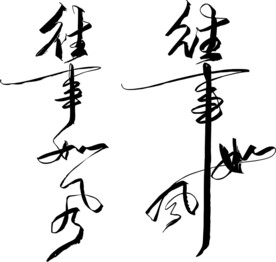 往事如风
往事如风